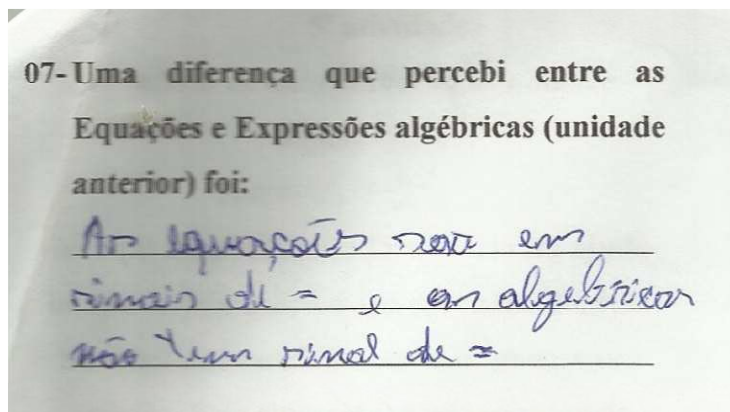 07- Uma diferença que percebi entre as
Equações e Expressões algébricas (unidade
anterior) foi:
As equações em
sinais de = e as algebricas
não tem sinal de =